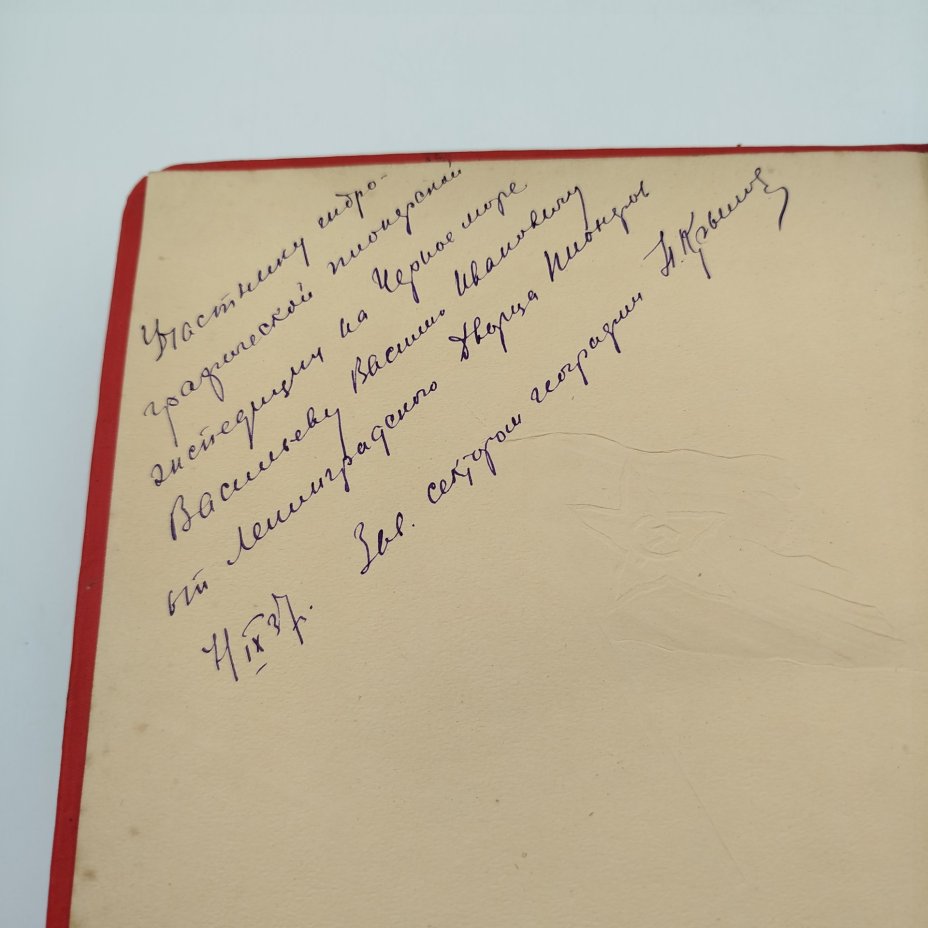 Участнику гидро-
графической пионерской
экспедиции на Черное море
Васильеву Василию Ивановичу
от Ленинградского Дворца Пионеров
Зав. сектором географии Н. Крылов
4/IX 37г.